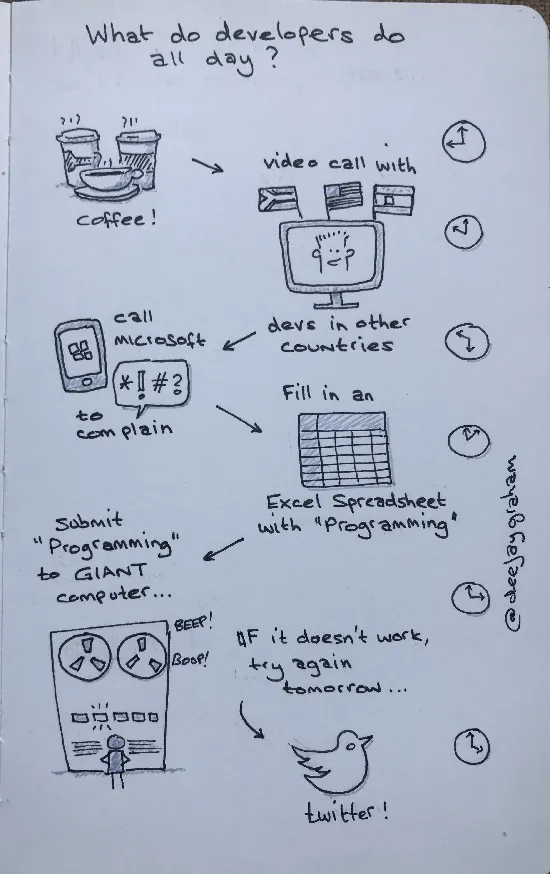 What do developers do
all day ?
?!?
?!!
coffee!
video call with
devs in other
countries
call
microsoft
*!#?
to
complain
Fill in an
Excel Spreadsheet
with "Programming"
Submit
"Programming"
to GIANT
computer...
BEEP!
BOOP!
IF it doesn't work,
try again
tomorrow...
twitter!
@deejaygraham